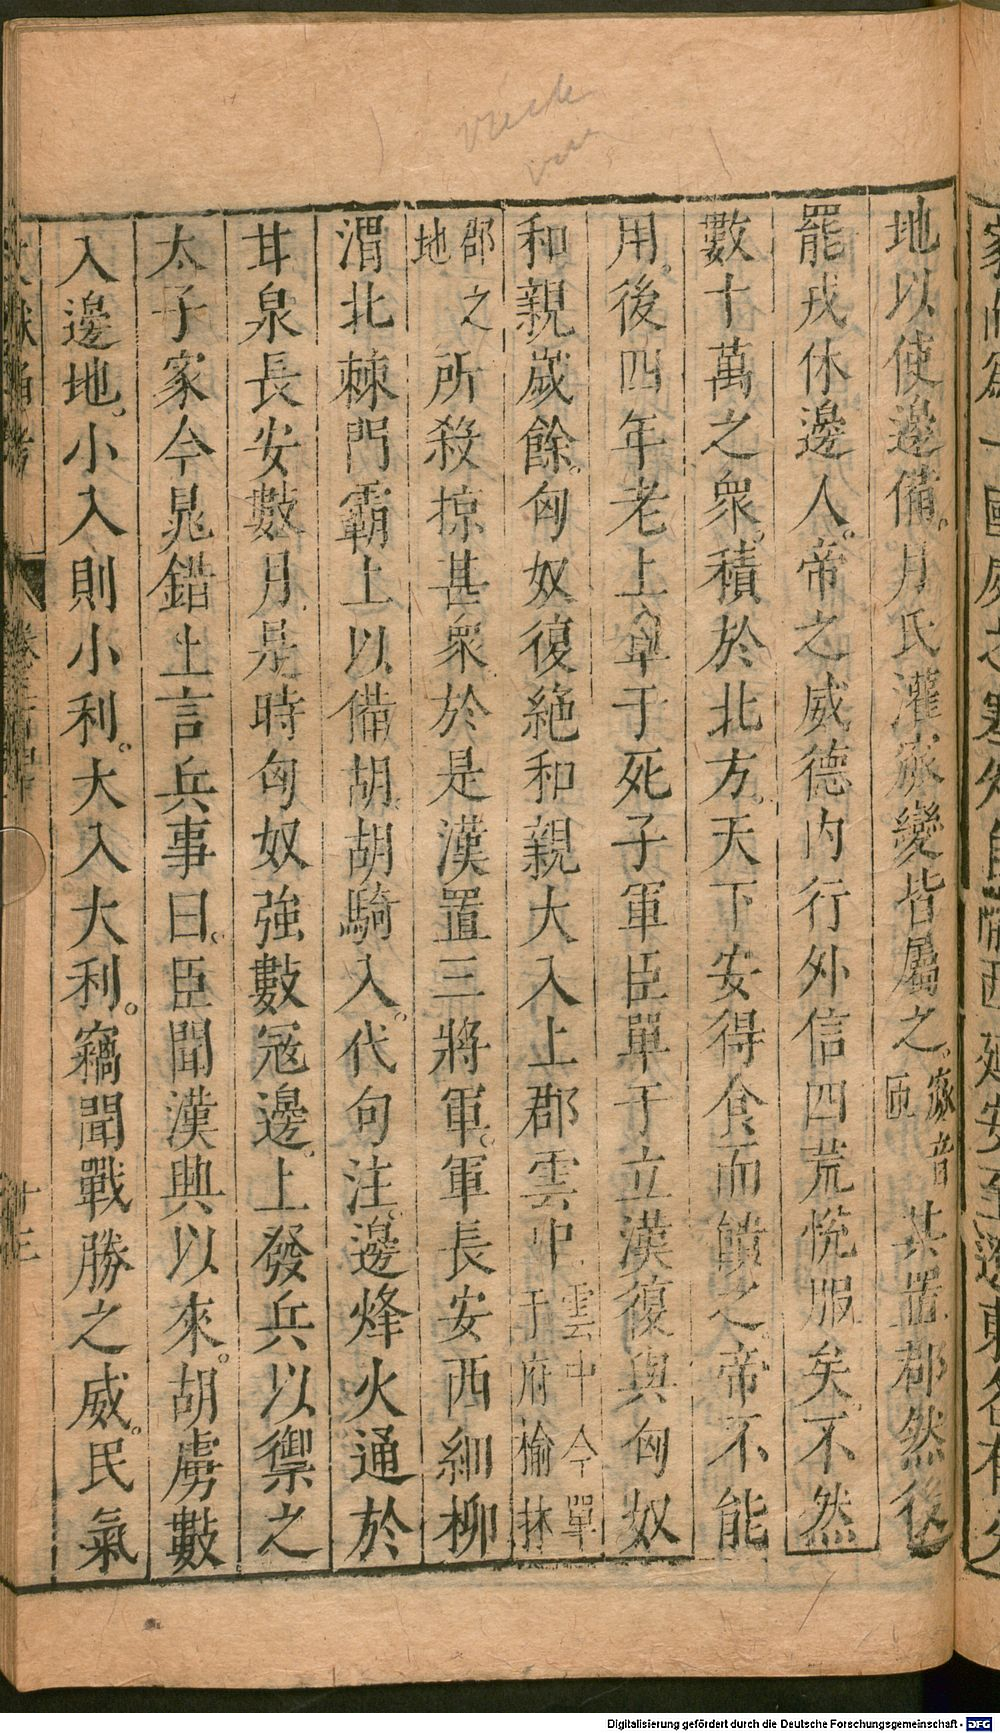 地以使邊備。月氏灌窳變皆屬之。窳音匬共置郡然後
罷戎休邊人。帝之威德內行外信四荒悅服矣。不然
數十萬之衆。積於北方。天下安得食而饋之。帝不能
用。後四年老上單于死子軍臣單于立漢復與匈奴
和親嵗餘。匈奴復絕和親大入上郡雲中雲中今單于府榆林
郡之地所殺掠甚衆於是漢置三將軍。軍長安西細柳
渭北棘門霸上以備胡。胡騎入。代句注。邊烽火通於
甘泉長安數月是時匈奴強數冦邊。上發兵以禦之
太子家令晁錯上言兵事曰。臣聞漢興以來。胡虜數
入邊地。小入則小利。大入大利。竊聞戰勝之威。民氣
十三
Digitalisierung gefördert durch die Deutsche Forschungsgemeinschaft - DFG